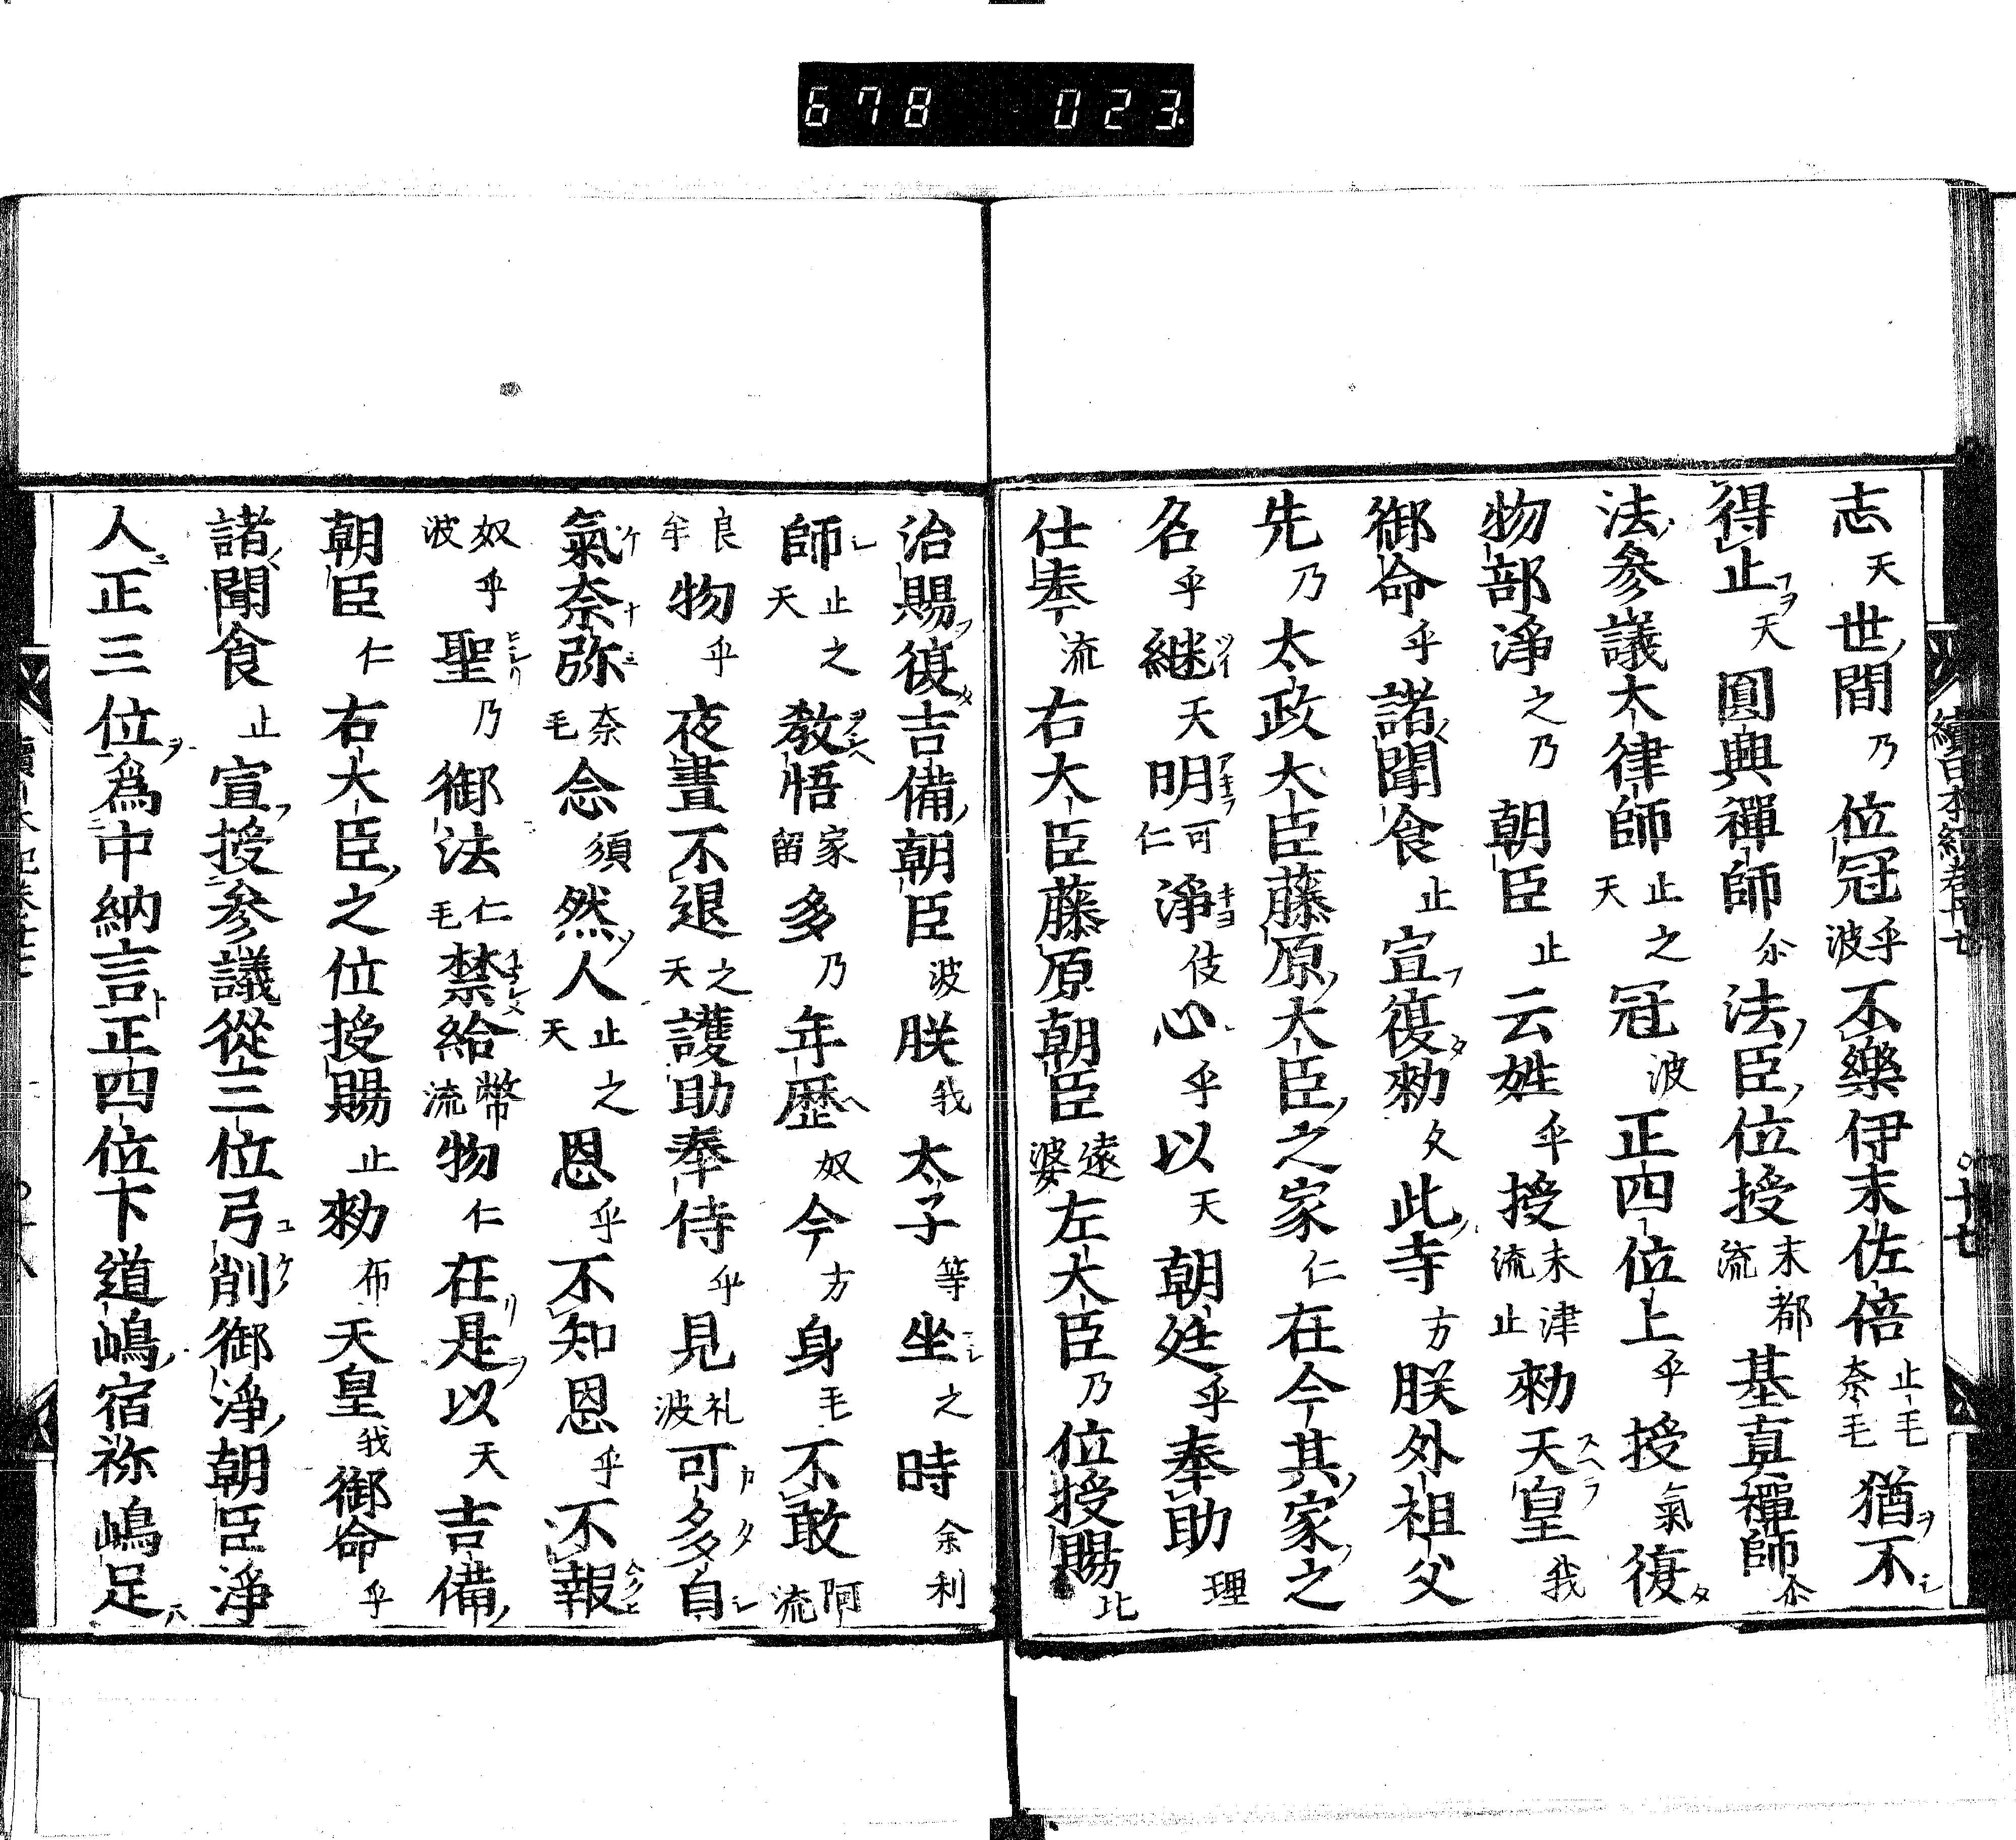 678 023
續日本紀卷廿七
十七
志天世間乃位冠乎波不樂伊末佐倍止毛奈毛猶不
得止天圓興禪師尒法臣位授末流都基真禪師尒
法參議大律師止之天冠波正四位上乎授氣復
物部淨之乃朝臣止云姓乎授末流津止勅天皇我
御命乎諸聞食止宣復勅夂此寺方朕外祖父
先乃太政大臣藤原大臣之家仁在今其家之
名乎継天明可仁淨伎心乎以天朝廷乎奉助理
仕奉流右大臣藤原朝臣遠婆左大臣乃位授賜比
治賜復吉備朝臣波朕我太子等坐之時余利
師止之天教悟家留多乃年歷奴今方身毛不敢阿流
良牟物乎夜晝不退之天護助奉侍乎見礼波可多自
氣奈弥奈毛念須然人止之天恩乎不知恩乎不報
奴乎波聖乃御法仁毛禁給幣流物仁在是以天吉備
朝臣仁右大臣之位授賜止勅布天皇我御命乎
諸聞食止宣授參議從三位弓削御淨朝臣淨
人正三位為中納言正四位下道嶋宿祢嶋足